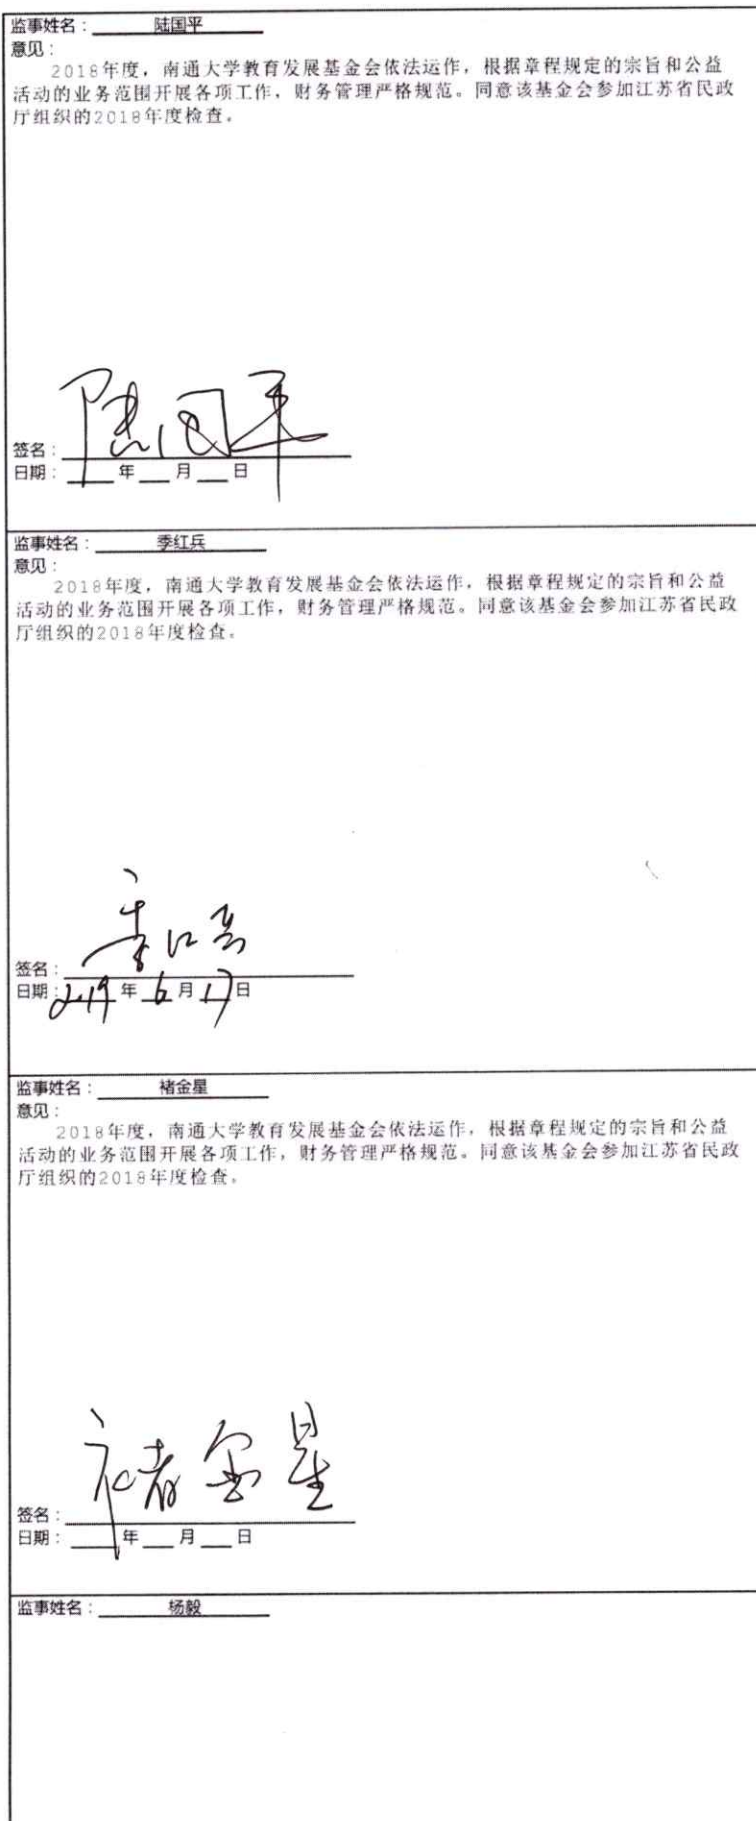 监事姓名：陆国平
意见：
2018年度，南通大学教育发展基金会依法运作，根据章程规定的宗旨和公益
活动的业务范围开展各项工作，财务管理严格规范。同意该基金会参加江苏省民政
厅组织的2018年度检查。
签名：陆国平
日期：____年___月___日
监事姓名：季红兵
意见：
2018年度，南通大学教育发展基金会依法运作，根据章程规定的宗旨和公益
活动的业务范围开展各项工作，财务管理严格规范。同意该基金会参加江苏省民政
厅组织的2018年度检查。
签名：季红兵
日期：2019年6月17日
监事姓名：褚金星
意见：
2018年度，南通大学教育发展基金会依法运作，根据章程规定的宗旨和公益
活动的业务范围开展各项工作，财务管理严格规范。同意该基金会参加江苏省民政
厅组织的2018年度检查。
签名：褚金星
日期：____年___月___日
监事姓名：杨毅